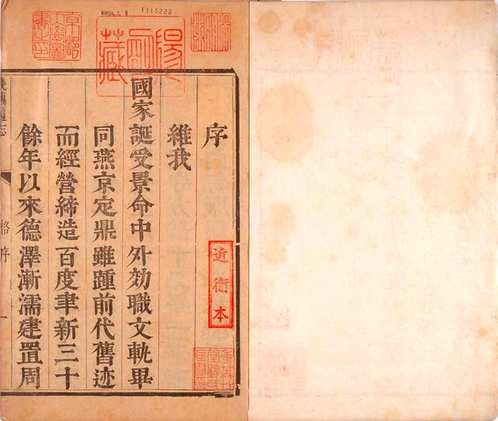 序
維我
國家誕受景命中外効職文軌畢
同燕京定鼎雖踵前代舊迹
而經營締造百度聿新三十
餘年以來德澤漸濡建置周
近衛本